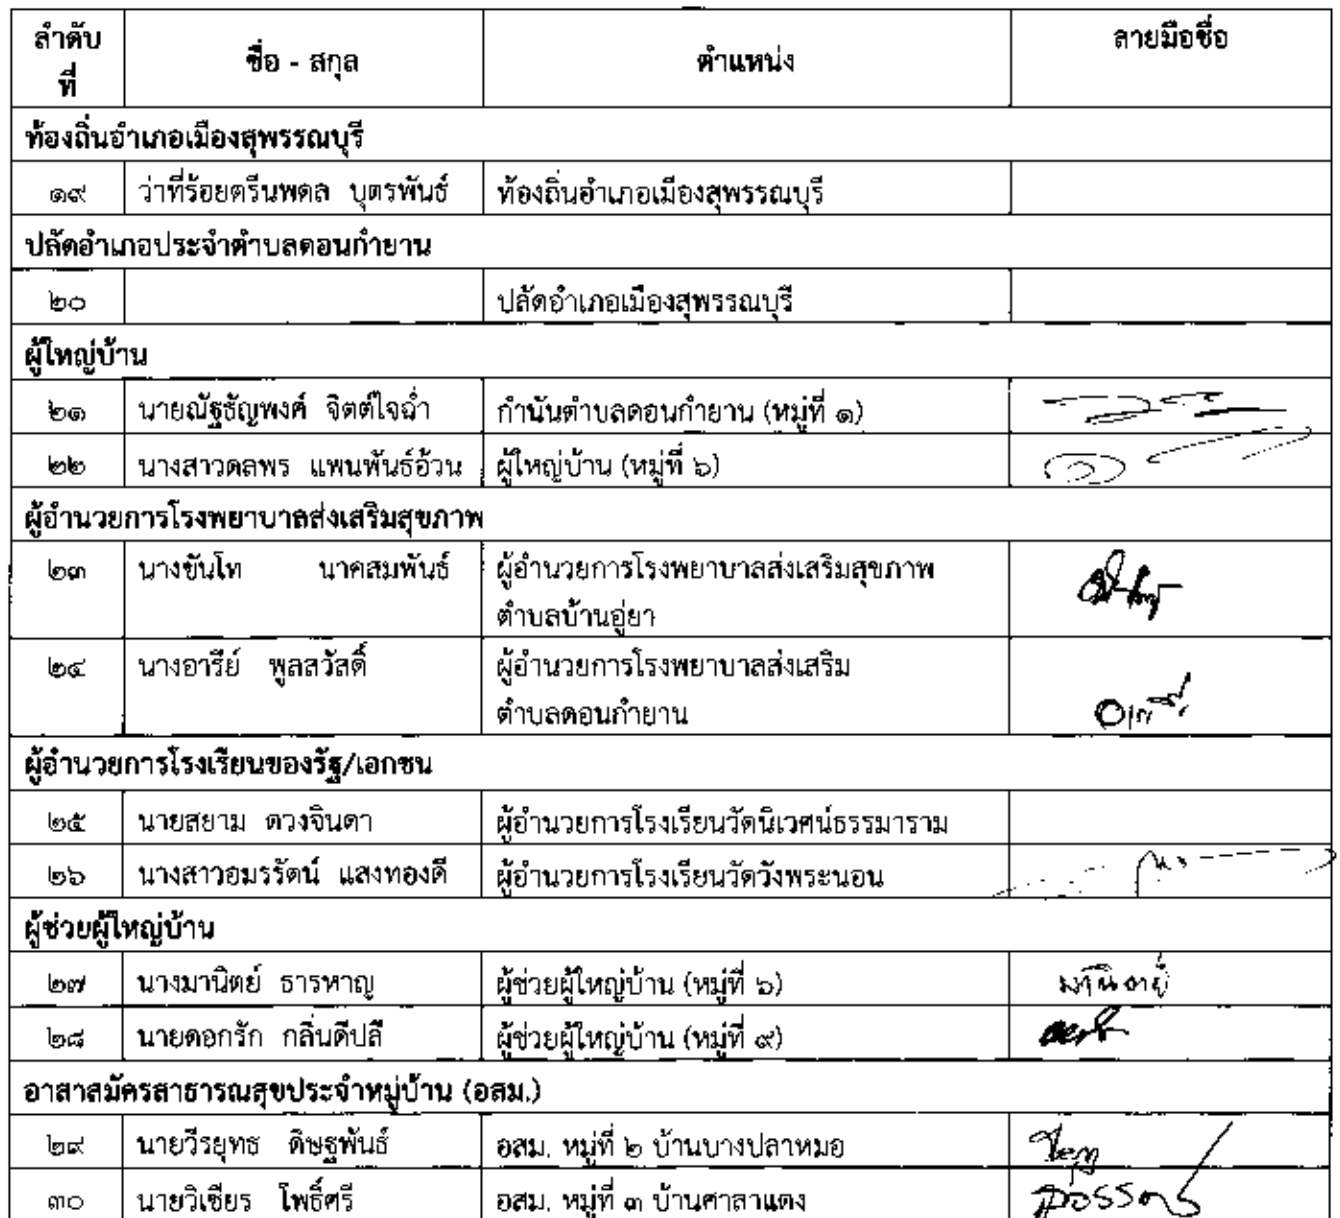 ลำดับที่ ชื่อ - สกุล ตำแหน่ง ลายมือชื่อ
ท้องถิ่นอำเภอเมืองสุพรรณบุรี
๑๙ ว่าที่ร้อยตรีนพดล บุตรพันธ์ ท้องถิ่นอำเภอเมืองสุพรรณบุรี
ปลัดอำเภอประจำตำบลดอนกำยาน
๒๐ ปลัดอำเภอเมืองสุพรรณบุรี
ผู้ใหญ่บ้าน
๒๑ นายณัฐธัญพงศ์ จิตต์ใจฉ่ำ กำนันตำบลดอนกำยาน (หมู่ที่ ๑)
๒๒ นางสาวดลพร แพนพันธ์อ้วน ผู้ใหญ่บ้าน (หมู่ที่ ๖)
ผู้อำนวยการโรงพยาบาลส่งเสริมสุขภาพ
๒๓ นางขันโท นาคสมพันธ์ ผู้อำนวยการโรงพยาบาลส่งเสริมสุขภาพ
ตำบลบ้านอู่ยา
๒๔ นางอารีย์ พูลสวัสดิ์ ผู้อำนวยการโรงพยาบาลส่งเสริม
ตำบลดอนกำยาน
ผู้อำนวยการโรงเรียนของรัฐ/เอกชน
๒๕ นายสยาม ดวงจินดา ผู้อำนวยการโรงเรียนวัดนิเวศน์ธรรมาราม
๒๖ นางสาวอมรรัตน์ แสงทองดี ผู้อำนวยการโรงเรียนวัดวังพระนอน
ผู้ช่วยผู้ใหญ่บ้าน
๒๗ นางมานิตย์ ธารหาญ ผู้ช่วยผู้ใหญ่บ้าน (หมู่ที่ ๖) มานิตย์
๒๘ นายดอกรัก กลิ่นดีปลี ผู้ช่วยผู้ใหญ่บ้าน (หมู่ที่ ๙)
อาสาสมัครสาธารณสุขประจำหมู่บ้าน (อสม.)
๒๙ นายวีรยุทธ ดิษฐพันธ์ อสม. หมู่ที่ ๒ บ้านบางปลาหมอ
๓๐ นายวิเชียร โพธิ์ศรี อสม. หมู่ที่ ๓ บ้านศาลาแดง